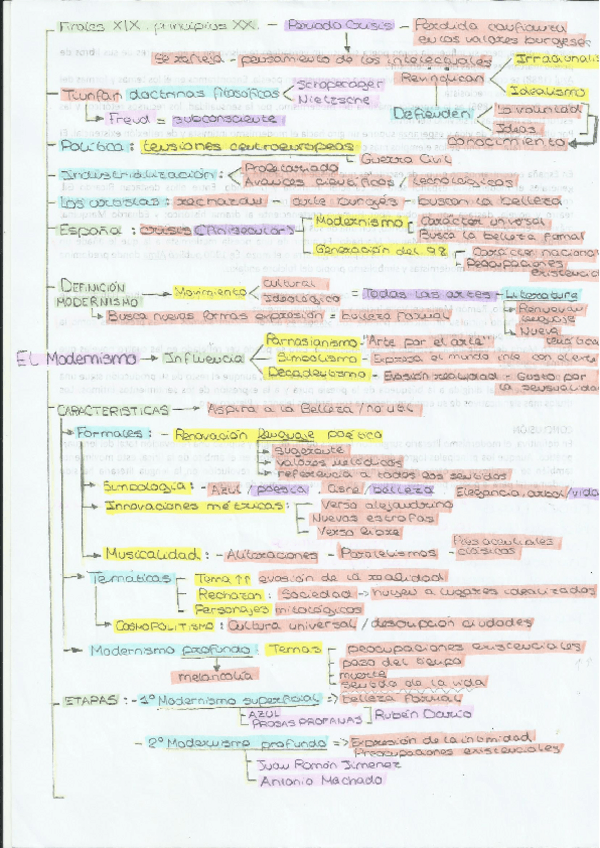 Finales XIX, principios XX. - Periodo Crisis - Pérdida confianza
en los valores burgeses
Se refleja - pensamiento de los intelectuales
Irracionalis
Idealismo
Triunfan doctrinas filosóficas
Nietzsche
Freud = subconsciente
Defienden
La voluntad
Ideas
conocimiento
Política: tensiones centroeuropeas
Guerra Civil
Industrialización:
Proletariado
Avances científicos / tecnológicos
Los artistas: rechazan - arte burgés - buscan la belleza
España: crisis (finisecular)
Modernismo
Carácter universal
Busca la belleza formal
Generación del 98
Carácter nacional
Preocupaciones
existencial
DEFINICIÓN
MODERNISMO
Movimiento
Cultural
Ideológico
= Todas las artes
Literatura
Renuevan
lenguaje
Nueva
temática
Busca nuevas formas expresión = belleza formal
EL Modernismo → Influencia
Parnasianismo - "Arte por el arte"
Simbolismo - Expresa el mundo
con el
Decadentismo - Evasión realidad - Gusto por
la sensualidad
CARACTERISTICAS → Aspira a la Belleza / no útil
Formales: - Renovación lenguaje poético
sugerente
valores melódicos
referencia a todos los sentidos
Simbología: - Azul / poesía. Cisne / belleza Elegancia. arbol / vida
Innovaciones métricas:
Verso alejandrino
Nuevas estrofas
Verso libre
Musicalidad: - Aliteraciones - Paralelismos -
clásicos
Temáticas
Tema ↑↑ evasión de la realidad
Rechazan: Sociedad → huyen a lugares idealizados
Personajes mitológicos
COSMOPOLITISMO: Cultura universal / descripción ciudades
Modernismo profundo: Temas
preocupaciones existenciales
paso del tiempo
muerte
sentido de la vida
melancolía
ETAPAS: - 1º Modernismo superficial => belleza formal
AZUL
PROSAS PROFANAS
Rubén Darío
- 2º Modernismo profundo => Expresión de la intimidad
Preocupaciones existenciales
Juan Ramón Jimenez
Antonio Machado